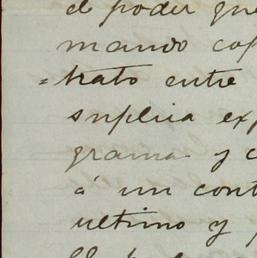 el poder que
mando cop
=trato entre
suplica exp
grama y c
á un cont
ultimo y p